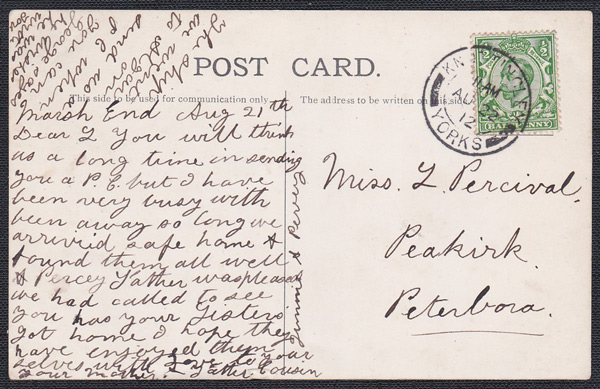 POST CARD.
This side to be used for communication only.
The address to be written on this side.
HALFPENNY
YORKS
12
Marsh End Aug 21th
Dear L You will think
us a long time in sending
you a P.C. but I have
been very busy with
been away so long we
arrived safe home &
found them all well
& Percey Father was pleased
we had called to see
you has your Sisters
got home I hope they
have enjoyed them
selves with Love to your
your mother & Father Cousin
Miss. L. Percival.
Peakirk.
Peterboro.